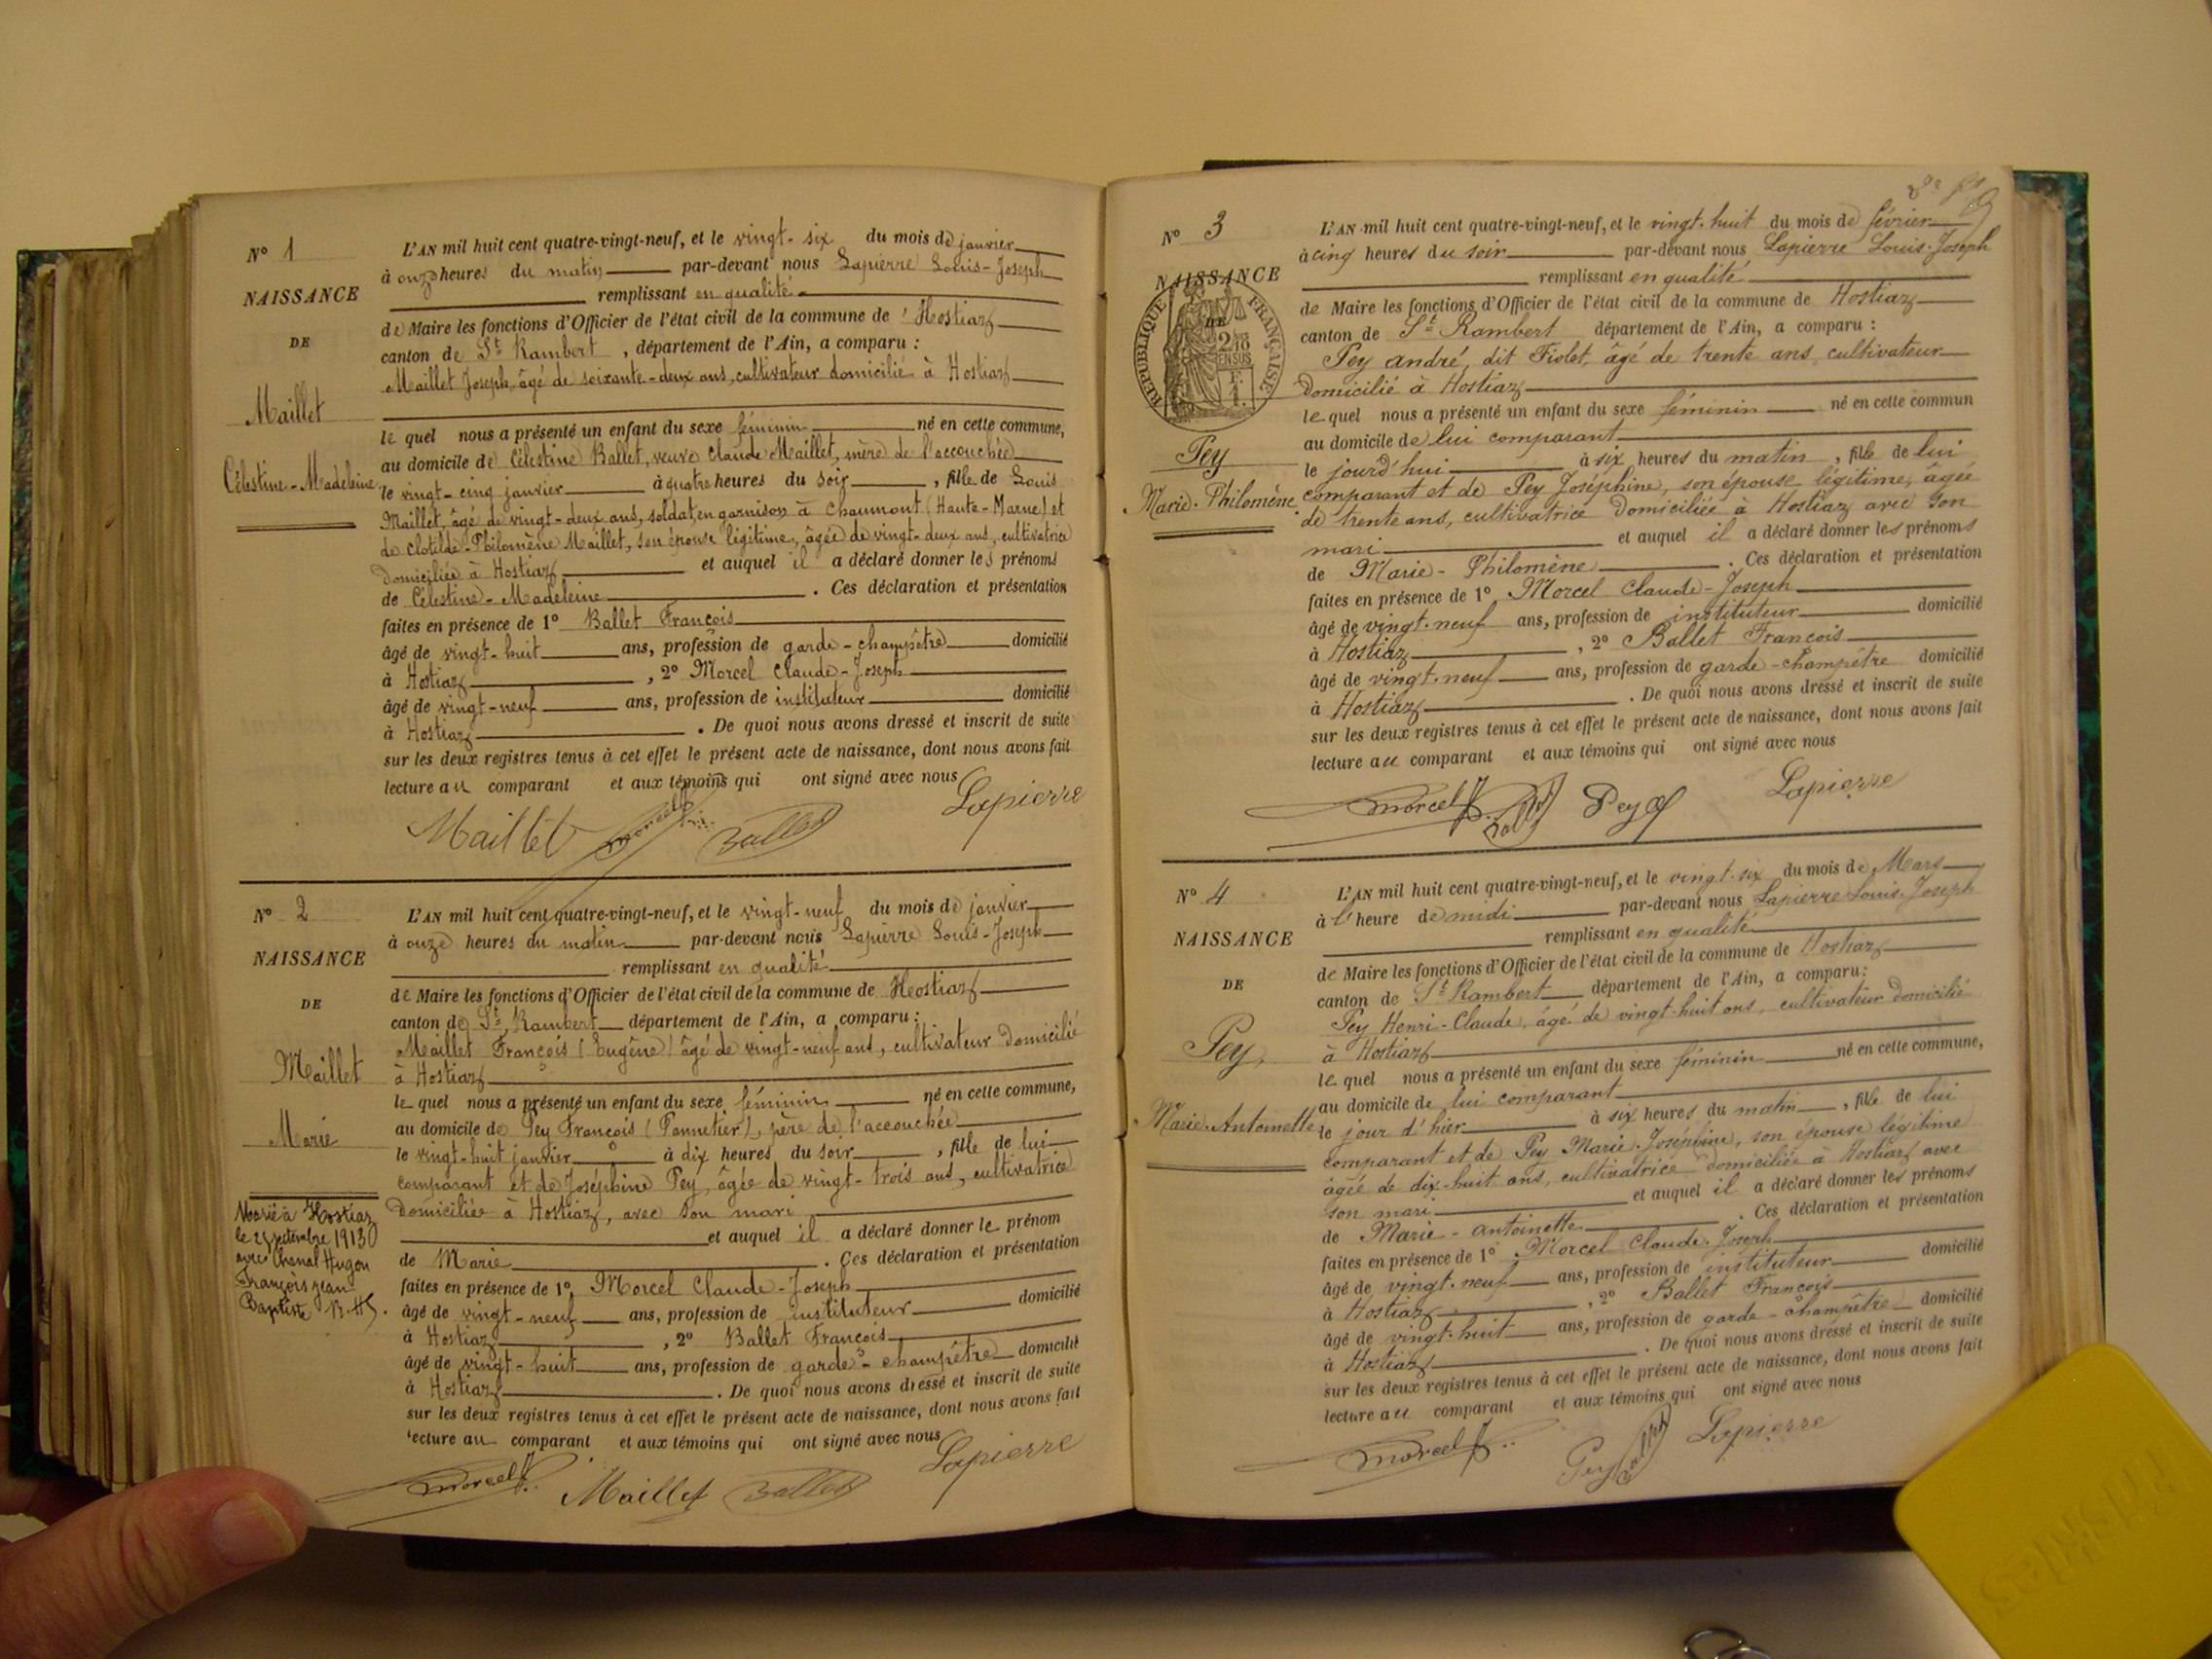 N° 1
NAISSANCE
DE
Maillet
Célestine-Madeleine
L'AN mil huit cent quatre-vingt-neuf, et le vingt-six du mois de janvier
à onze heures du matin par-devant nous Lapierre Louis-Joseph
remplissant en qualité
de Maire les fonctions d'Officier de l'état civil de la commune de Hostiaz
canton de St Rambert, département de l'Ain, a comparu :
Maillet Joseph, âgé de soixante-deux ans, cultivateur domicilié à Hostiaz
lequel nous a présenté un enfant du sexe féminin né en cette commune,
au domicile de Célestine Ballet, veuve Claude Maillet, mère de l'accouchée
le vingt-cinq janvier à quatre heures du soir, fille de Louis
Maillet, âgé de vingt-deux ans, soldat, en garnison à Chaumont (Haute-Marne) et
de Clotilde-Philomène Maillet, son épouse légitime, âgée de vingt-deux ans, cultivatrice
domiciliée à Hostiaz et auquel il a déclaré donner les prénoms
de Célestine-Madeleine. Ces déclaration et présentation
faites en présence de 1° Ballet François
âgé de vingt-huit ans, profession de garde-champêtre domicilié
à Hostiaz, 2° Morcel Claude-Joseph
âgé de vingt-neuf ans, profession de instituteur domicilié
à Hostiaz. De quoi nous avons dressé et inscrit de suite
sur les deux registres tenus à cet effet le présent acte de naissance, dont nous avons fait
lecture au comparant et aux témoins qui ont signé avec nous
Maillet Morcel Ballet Lapierre
N° 2
NAISSANCE
DE
Maillet
Marie
Marié à Hostiaz
le septembre 1913
avec Chenal Hugon
François Jean
Baptiste
L'AN mil huit cent quatre-vingt-neuf, et le vingt-neuf du mois de janvier
à onze heures du matin par-devant nous Lapierre Louis-Joseph
remplissant en qualité
de Maire les fonctions d'Officier de l'état civil de la commune de Hostiaz
canton de St Rambert département de l'Ain, a comparu :
Maillet François (Eugène) âgé de vingt-neuf ans, cultivateur domicilié
à Hostiaz
lequel nous a présenté un enfant du sexe féminin né en cette commune,
au domicile de Pey François (Pannetier), père de l'accouchée
le vingt-huit janvier à dix heures du soir, fille de lui
comparant et de Joséphine Pey, âgée de vingt-trois ans, cultivatrice
domiciliée à Hostiaz, avec son mari
et auquel il a déclaré donner le prénom
de Marie. Ces déclaration et présentation
faites en présence de 1° Morcel Claude-Joseph
âgé de vingt-neuf ans, profession de instituteur domicilié
à Hostiaz, 2° Ballet François
âgé de vingt-huit ans, profession de garde-champêtre domicilié
à Hostiaz. De quoi nous avons dressé et inscrit de suite
sur les deux registres tenus à cet effet le présent acte de naissance, dont nous avons fait
lecture au comparant et aux témoins qui ont signé avec nous
Morcel Maillet Ballet Lapierre
N° 3
NAISSANCE
DE
RÉPUBLIQUE FRANÇAISE
Pey
Marie-Philomène
L'AN mil huit cent quatre-vingt-neuf, et le vingt-huit du mois de février
à cinq heures du soir par-devant nous Lapierre Louis-Joseph
remplissant en qualité
de Maire les fonctions d'Officier de l'état civil de la commune de Hostiaz
canton de St Rambert département de l'Ain, a comparu :
Pey André, dit Fiolet, âgé de trente ans, cultivateur
domicilié à Hostiaz
lequel nous a présenté un enfant du sexe féminin né en cette commun
au domicile de lui comparant
le jourd'hui à six heures du matin, fille de lui
comparant et de Pey Joséphine, son épouse légitime, âgée
de trente ans, cultivatrice domiciliée à Hostiaz avec son
mari et auquel il a déclaré donner les prénoms
de Marie-Philomène. Ces déclaration et présentation
faites en présence de 1° Morcel Claude-Joseph
âgé de vingt-neuf ans, profession de instituteur domicilié
à Hostiaz, 2° Ballet François
âgé de vingt-neuf ans, profession de garde-champêtre domicilié
à Hostiaz. De quoi nous avons dressé et inscrit de suite
sur les deux registres tenus à cet effet le présent acte de naissance, dont nous avons fait
lecture au comparant et aux témoins qui ont signé avec nous
Morcel Ballet Pey Lapierre
N° 4
NAISSANCE
DE
Pey,
Marie-Antoinette
L'AN mil huit cent quatre-vingt-neuf, et le vingt-six du mois de Mars
à l'heure de midi par-devant nous Lapierre Louis-Joseph
remplissant en qualité
de Maire les fonctions d'Officier de l'état civil de la commune de Hostiaz
canton de St Rambert département de l'Ain, a comparu :
Pey Henri-Claude, âgé de vingt-huit ans, cultivateur domicilié
à Hostiaz
lequel nous a présenté un enfant du sexe féminin né en cette commune,
au domicile de lui comparant
le jour d'hier à six heures du matin, fille de lui
comparant et de Pey Marie-Joséphine, son épouse légitime
âgée de dix-huit ans, cultivatrice domiciliée à Hostiaz avec
son mari et auquel il a déclaré donner les prénoms
de Marie-Antoinette. Ces déclaration et présentation
faites en présence de 1° Morcel Claude-Joseph
âgé de vingt-neuf ans, profession de instituteur domicilié
à Hostiaz, 2° Ballet François
âgé de vingt-huit ans, profession de garde-champêtre domicilié
à Hostiaz. De quoi nous avons dressé et inscrit de suite
sur les deux registres tenus à cet effet le présent acte de naissance, dont nous avons fait
lecture au comparant et aux témoins qui ont signé avec nous
Morcel Pey Ballet Lapierre